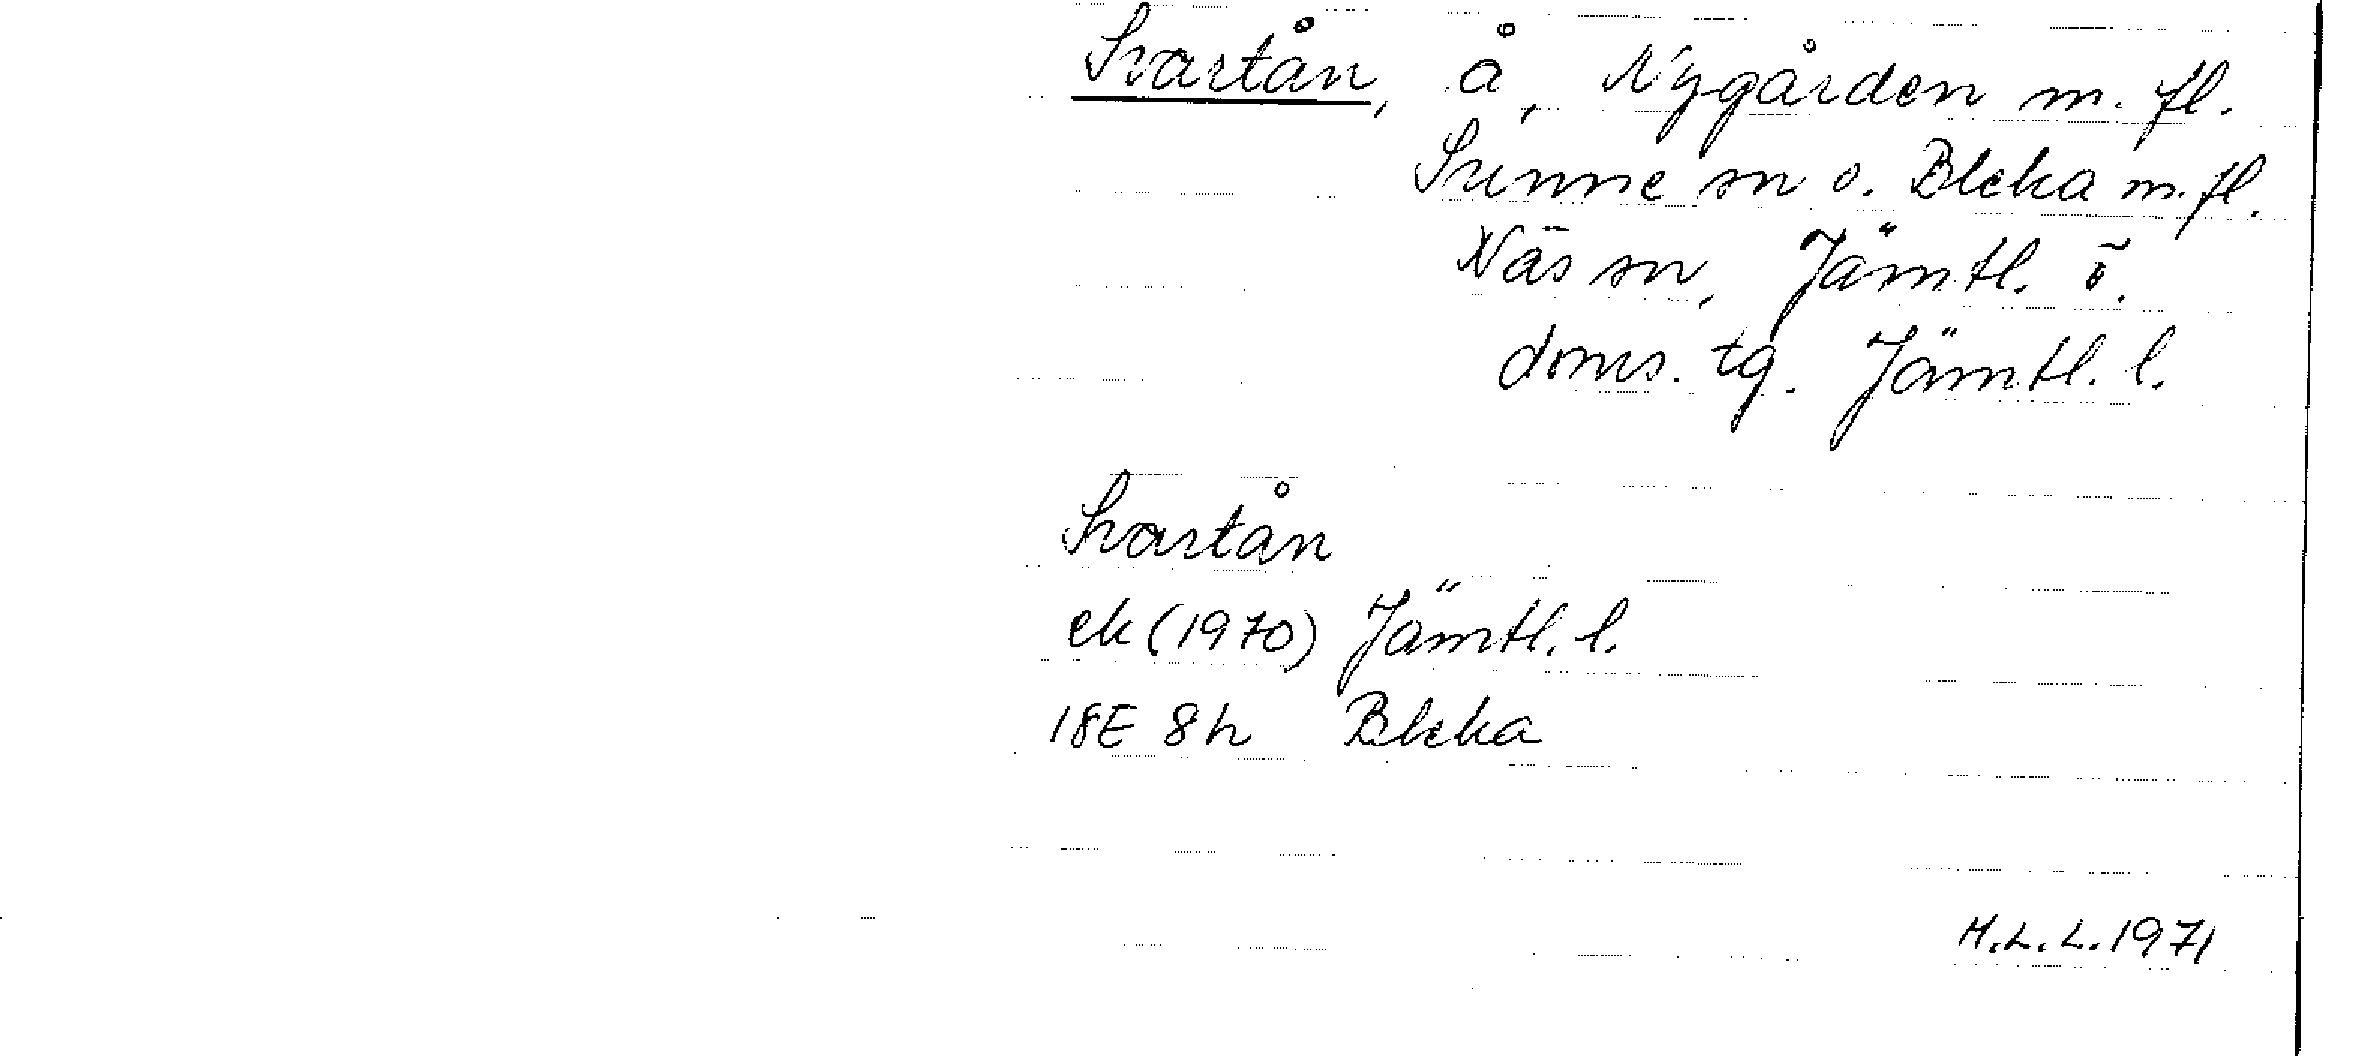 Svartån, å, Nygården m. fl.
Sunne sn o. Bleka m. fl.
Näs sn, Jämtl. ö.
doms. tg. Jämtl. l.
Svartån
ek (1970) Jämtl. l.
18E 8h Bleka
H.L.L. 1971